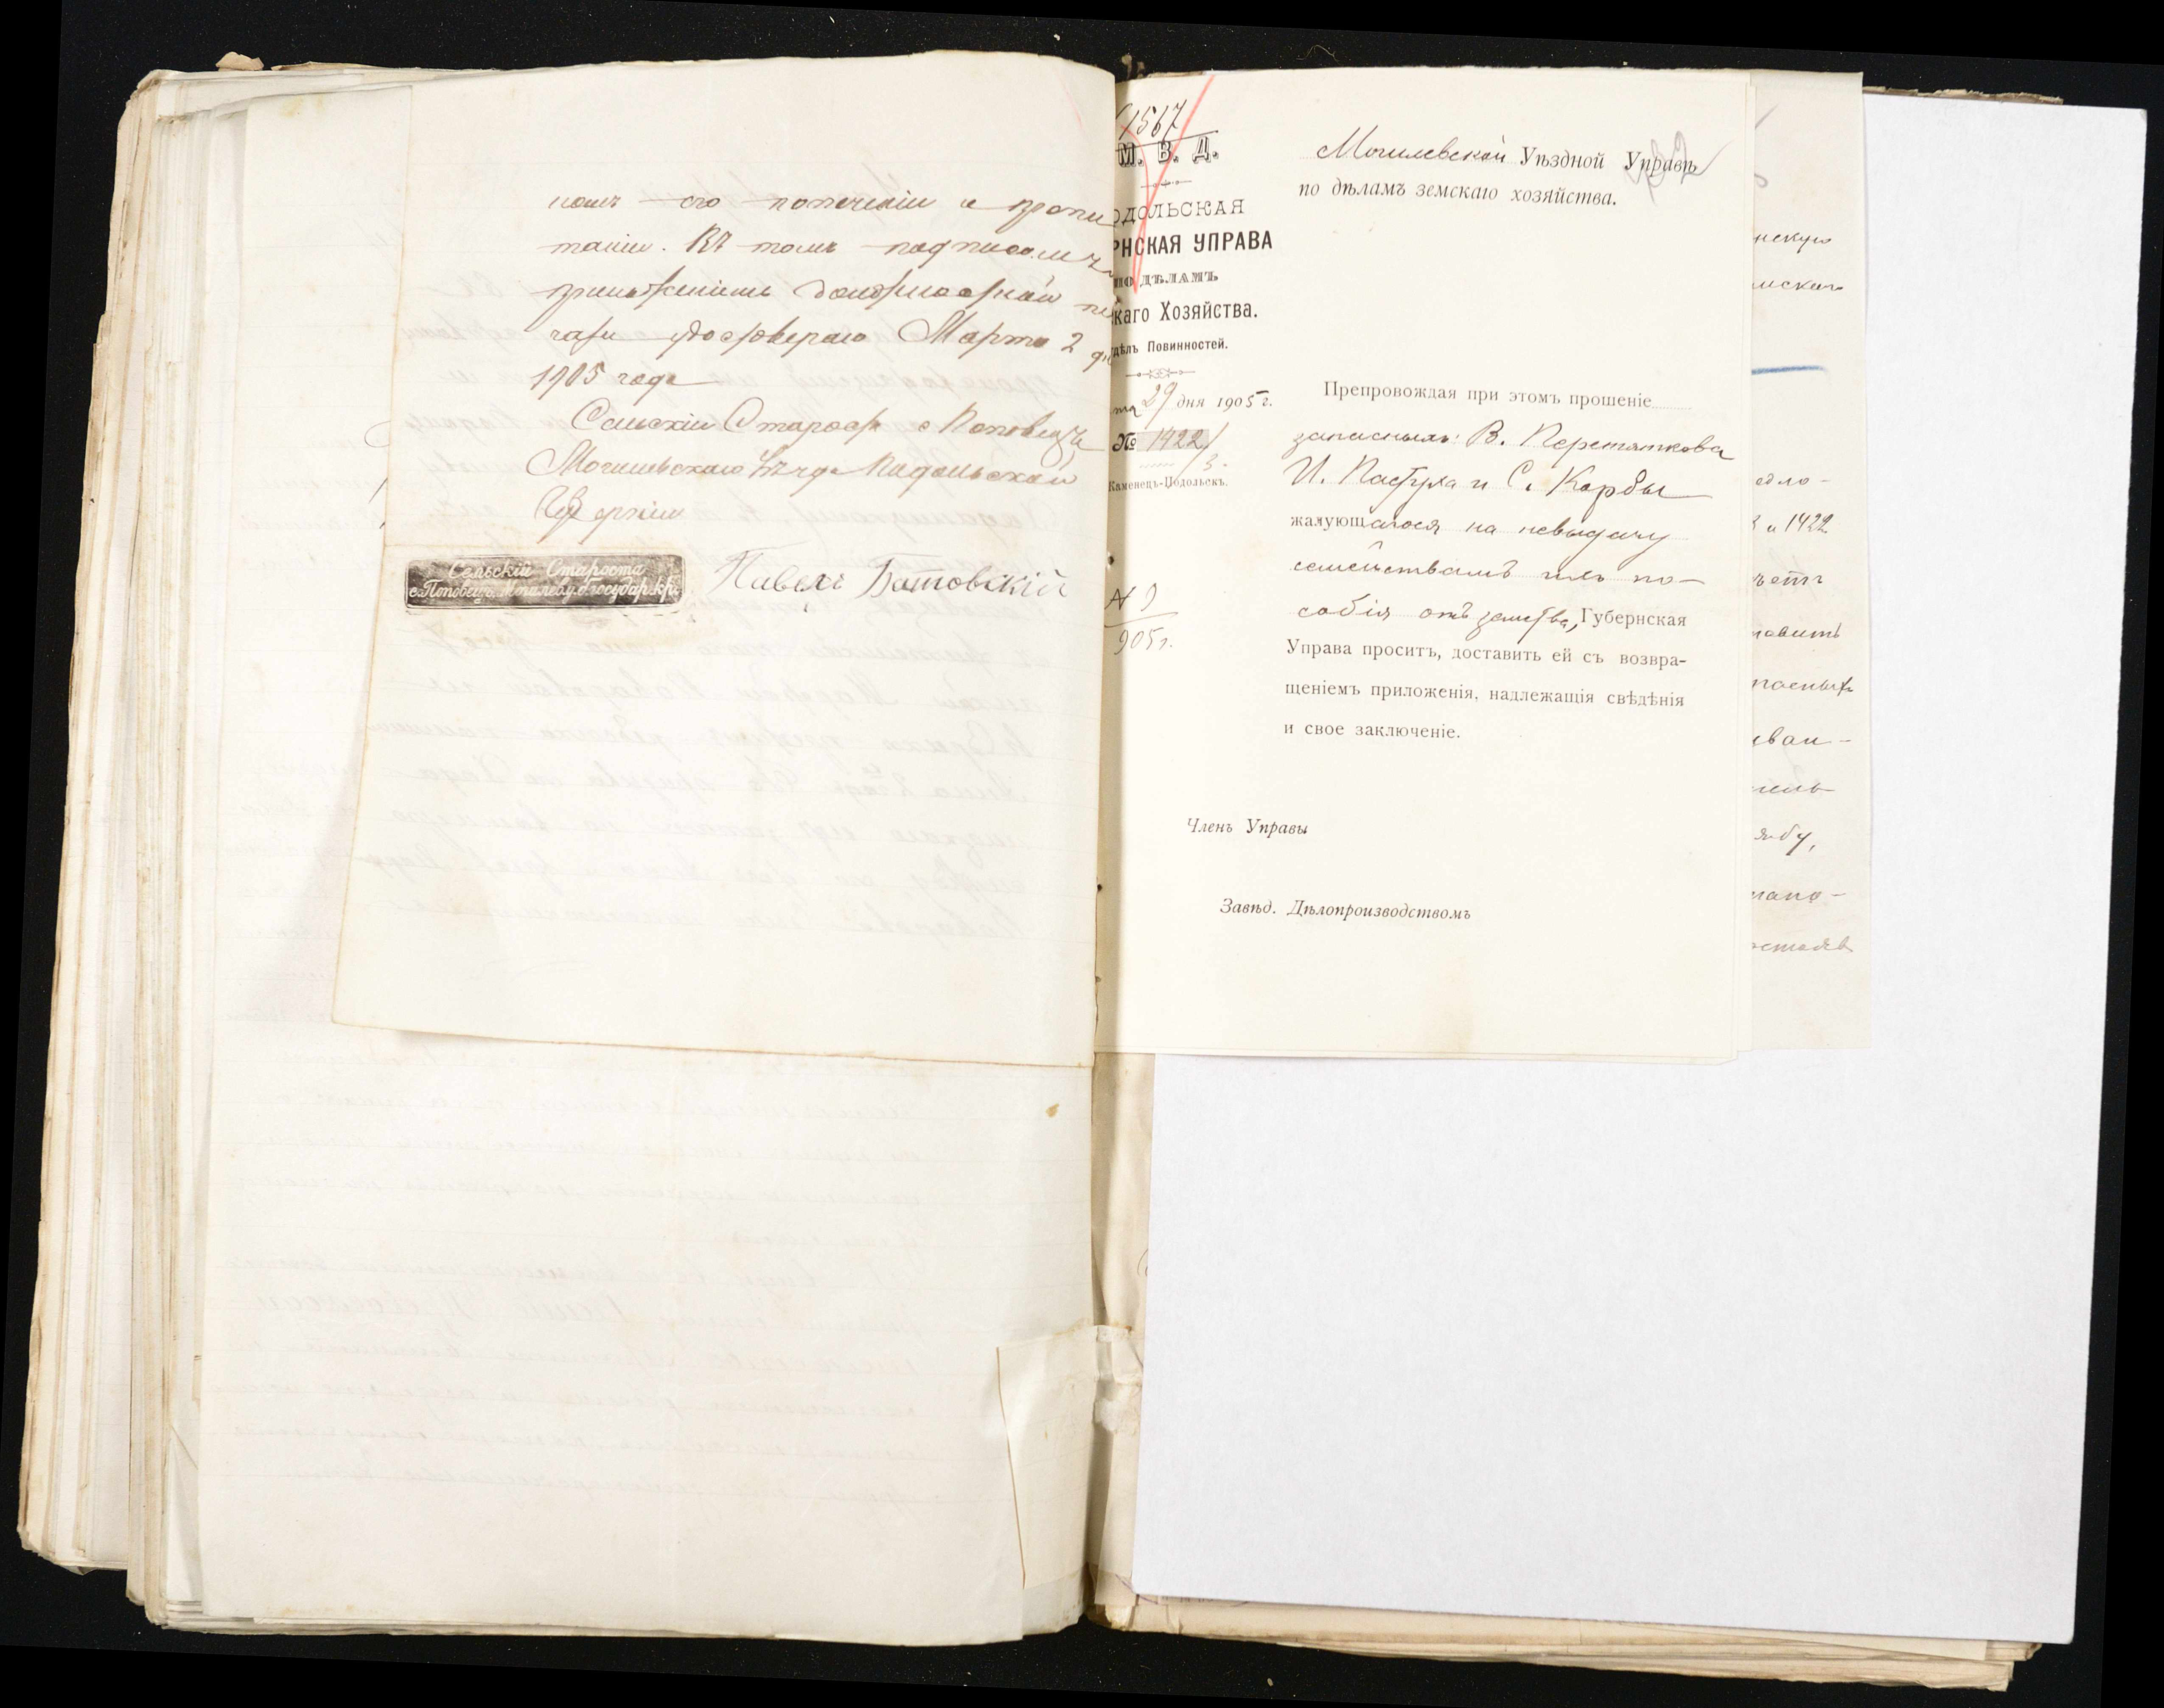 номъ его попеченіи и пропи
таніи. Въ томъ подписомъ и
приложеніемъ должностной пе
чати удостовѣряю Марта 2 дня
1905 года
Сельскій Староста с Поповецъ
Могилевскаго Уѣзда Подольской
Губерніи
Сельскій Староста
с. Поповецъ, Могилев. у. б. государ. кр.
Павелъ Батовскій
1567
М. В. Д.
ОДОЛЬСКАЯ
РНСКАЯ УПРАВА
ПО ДѢЛАМЪ
каго Хозяйства.
дѣлъ Повинностей.
та 29 дня 1905 г.
№ 1422/3.
Каменецъ-Подольскъ.
№ 9
905 г.
Могилевской Уѣздной Управѣ
по дѣламъ земскаго хозяйства.
Препровождая при этомъ прошеніе
запасныхъ: В. Перетяткова
И. Пастуха и С. Корбы
жалующагося на невыдачу
семействамъ ихъ по-
собія отъ земства, Губернская
Управа проситъ, доставить ей съ возвра-
щеніемъ приложенія, надлежащія свѣдѣнія
и свое заключеніе.
Членъ Управы
Завѣд. Дѣлопроизводствомъ
нскую
мскаго
едло-
и 1422
вить
пасныхъ
ван-
тель
жбу,